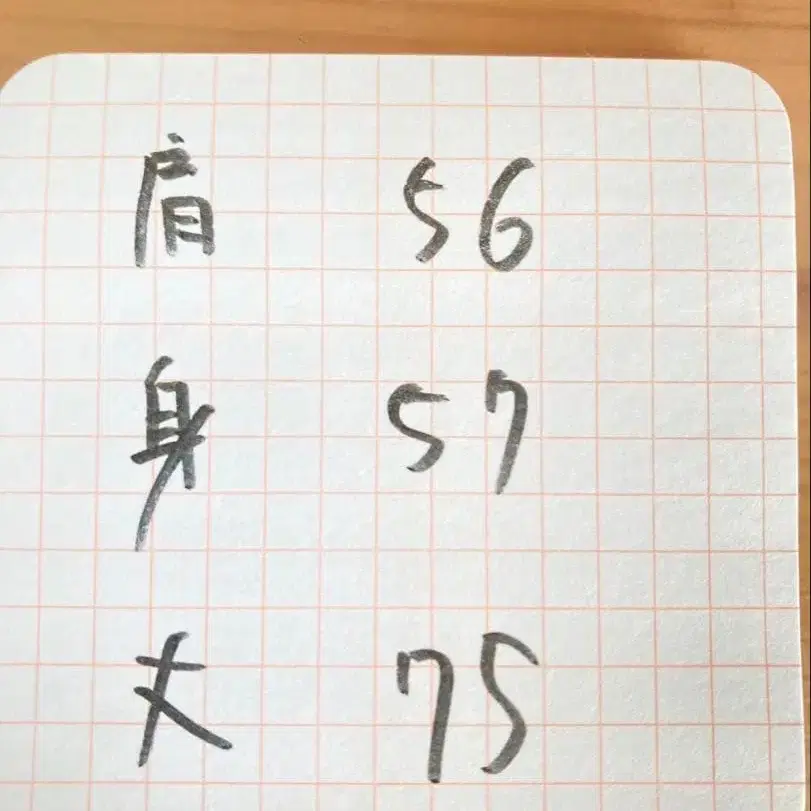 肩 56
身 57
丈 75